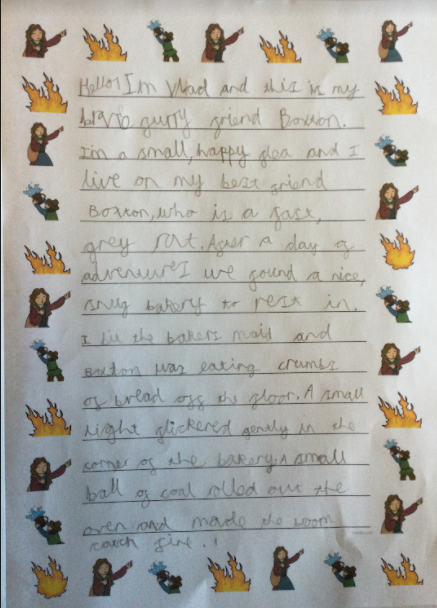 Hello! I'm Vlad and this is my
brave furry friend Boxton.
I'm a small, happy flea and I
live on my best friend
Boxton, who is a fast,
grey rat. After a day of
adventure I we found a nice,
snug bakery to rest in.
I bit the bakers maid and
Boxton was eating crumbs
of bread off the floor. A small
light flickered gently in the
corner of the bakery. A small
ball of coal rolled out the
oven and made the room
catch fire.!